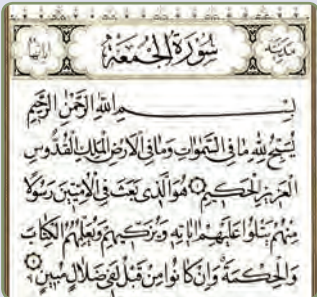 مدنية سُورَةُ الْجُمُعَةِ آياتها
بِسْمِ اللّٰهِ الرَّحْمٰنِ الرَّحِيمِ
يُسَبِّحُ لِلّٰهِ مَا فِي السَّمٰوَاتِ وَمَا فِي الْاَرْضِ الْمَلِكِ الْقُدُّوسِ
الْعَزِيزِ الْحَكِيمِ هُوَ الَّذِي بَعَثَ فِي الْاُمِّيّٖنَ رَسُولًا
مِنْهُمْ يَتْلُوا عَلَيْهِمْ اٰيَاتِهِ وَيُزَكِّيهِمْ وَيُعَلِّمُهُمُ الْكِتَابَ
وَالْحِكْمَةَ وَاِنْ كَانُوا مِنْ قَبْلُ لَفِي ضَلَالٍ مُبِينٍ